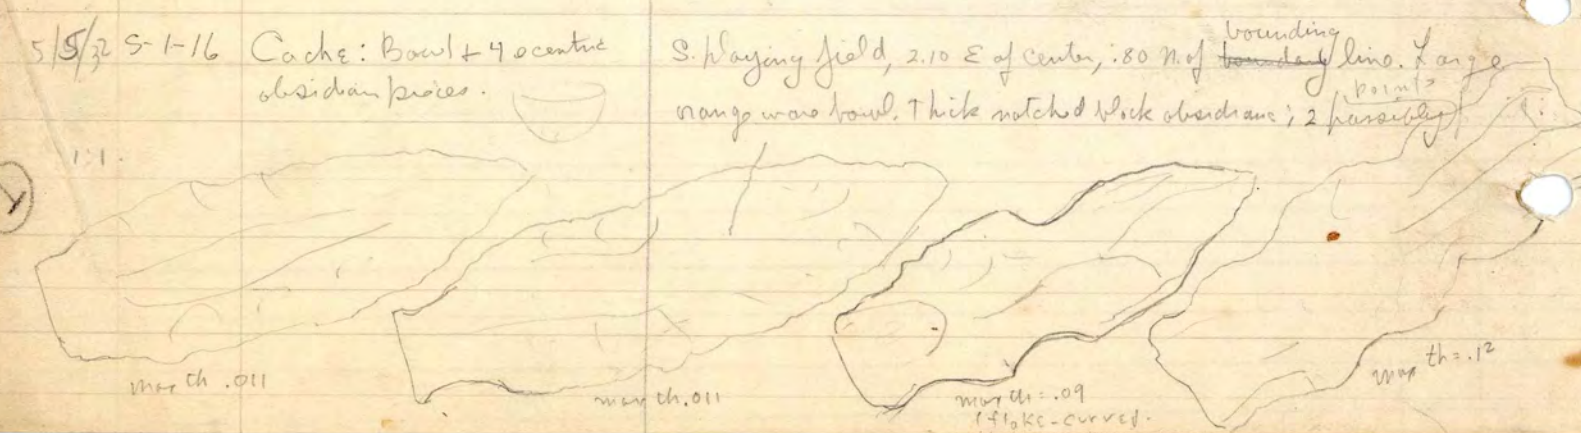 5/5/32 S-1-16 Cache: Bowl + 4 ecentric
obsidian pieces.
S. playing field, 2.10 E of center, .80 N. of boundary bounding line. Large
orange ware bowl. Thick notched block obsidians; 2 possibly points
1:1.
max th .011
max th .011
max th = .09
flake-curved.
max th = .12